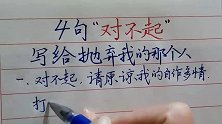 4句“对不起”
写给抛弃我的那个人
一、对不起,请原谅我的自作多情,
打